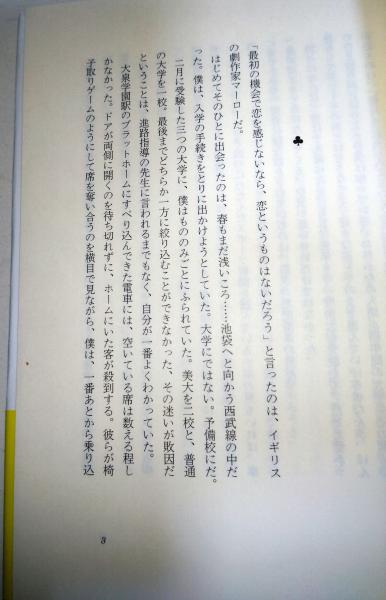 ♣
「最初の機会で恋を感じないなら、恋というものはないだろう」と言ったのは、イギリス
の劇作家マーローだ。
はじめてそのひとに出会ったのは、春もまだ浅いころ……池袋へと向かう西武線の中だ
った。僕は、入学の手続きをとりに出かけようとしていた。大学にではない。予備校にだ。
二月に受験した三つの大学に、僕はもののみごとにふられていた。美大を二校と、普通
の大学を一校。最後までどちらか一方に絞り込むことができなかった、その迷いが敗因だ
ということは、進路指導の先生に言われるまでもなく、自分が一番よくわかっていた。
大泉学園駅のプラットホームにすべり込んできた電車には、空いている席は数える程し
かなかった。ドアが両側に開くのを待ち切れずに、ホームにいた客が殺到する。彼らが椅
子取りゲームのようにして席を奪い合うのを横目で見ながら、僕は、一番あとから乗り込
3